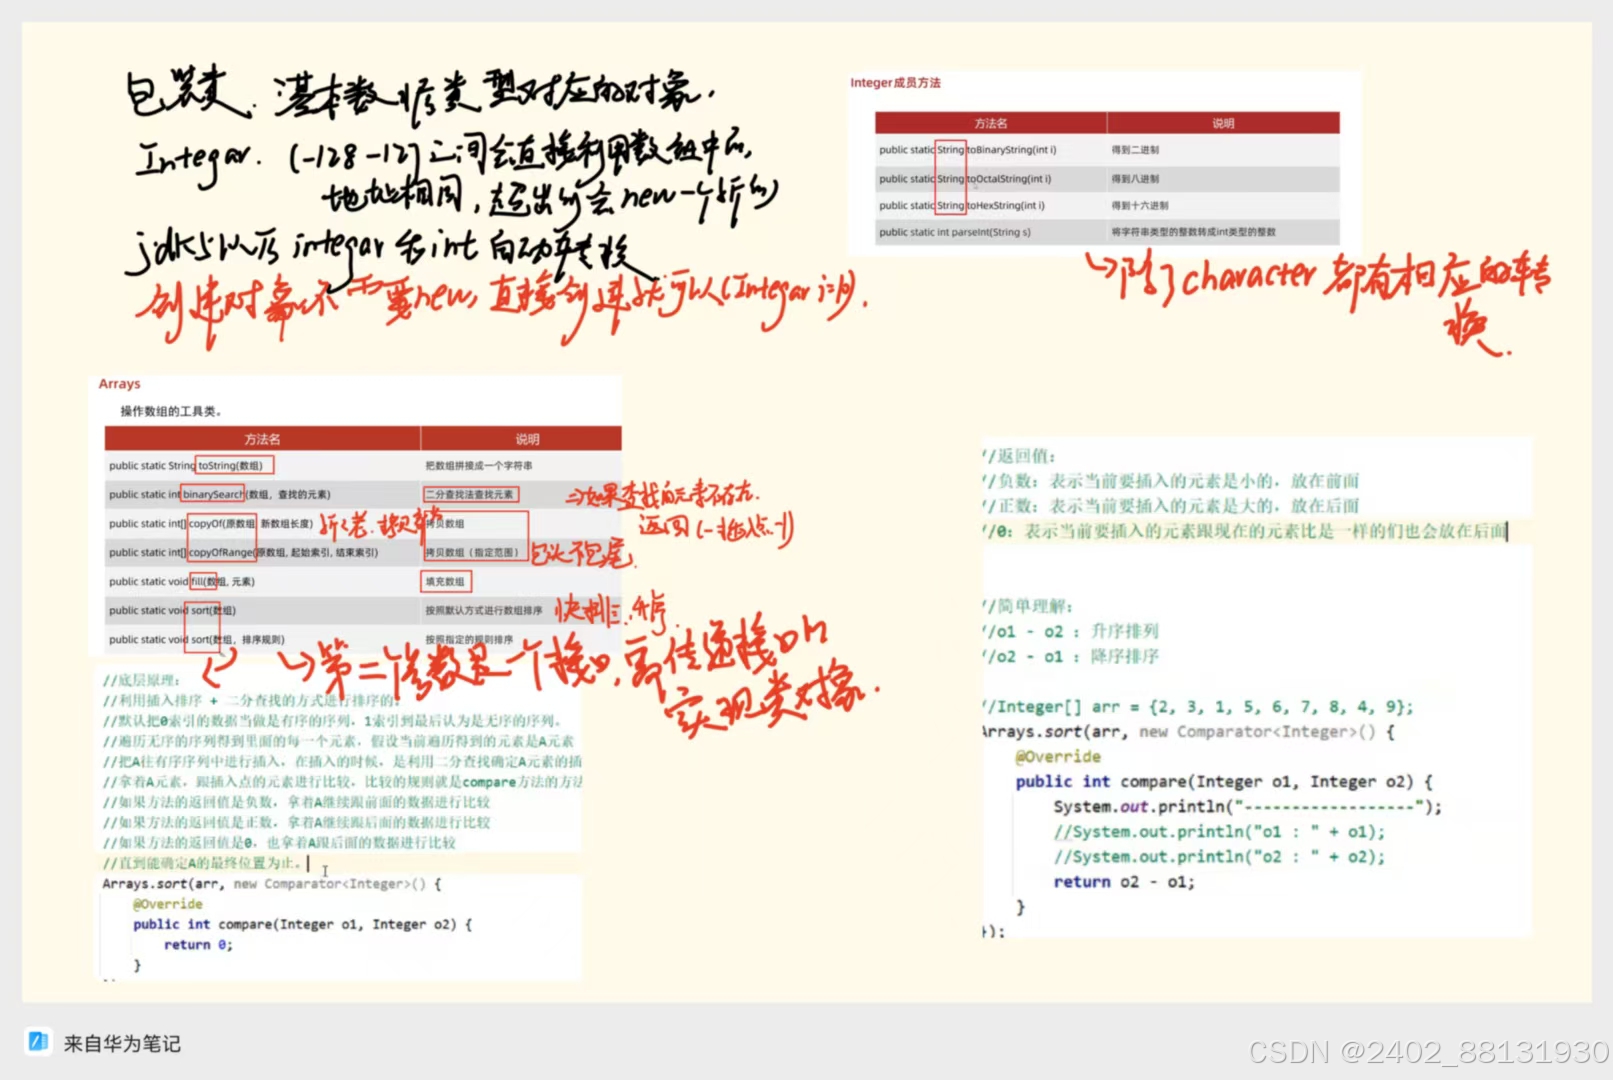 包装类. 基本数据类型对应的对象.
Integar. (-128-127)之间会直接利用数组中的,
地址相同, 超出则会new一个新的
jdk5以后 integar和int自动转换
创建对象不需要new, 直接创建就可以(Integar i=10).
Integer成员方法
方法名 说明
public static String toBinaryString(int i) 得到二进制
public static String toOctalString(int i) 得到八进制
public static String toHexString(int i) 得到十六进制
public static int parseInt(String s) 将字符串类型的整数转成int类型的整数
除了character都有相应的转
换.
Arrays
操作数组的工具类。
方法名 说明
public static String toString(数组) 把数组拼接成一个字符串
public static int binarySearch(数组，查找的元素) 二分查找法查找元素
⇒如果查找的元素不存在.
返回(-插入点-1)
public static int[] copyOf(原数组, 新数组长度) 拷贝数组
public static int[] copyOfRange(原数组, 起始索引, 结束索引) 拷贝数组（指定范围）
包头不包尾.
public static void fill(数组, 元素) 填充数组
public static void sort(数组) 按照默认方式进行数组排序
快排. 升序.
public static void sort(数组，排序规则) 按照指定的规则排序
第二个参数是一个接口, 需传递接口的
实现类对象.
//底层原理：
//利用插入排序 + 二分查找的方式进行排序的。
//默认把0索引的数据当做是有序的序列，1索引到最后认为是无序的序列。
//遍历无序的序列得到里面的每一个元素，假设当前遍历得到的元素是A元素
//把A往有序序列中进行插入，在插入的时候，是利用二分查找确定A元素的插
//拿着A元素，跟插入点的元素进行比较，比较的规则就是compare方法的方法
//如果方法的返回值是负数，拿着A继续跟前面的数据进行比较
//如果方法的返回值是正数，拿着A继续跟后面的数据进行比较
//如果方法的返回值是0，也拿着A跟后面的数据进行比较
//直到能确定A的最终位置为止。
Arrays.sort(arr, new Comparator<Integer>() {
@Override
public int compare(Integer o1, Integer o2) {
return 0;
}
//返回值：
//负数：表示当前要插入的元素是小的，放在前面
//正数：表示当前要插入的元素是大的，放在后面
//0：表示当前要插入的元素跟现在的元素比是一样的们也会放在后面
//简单理解：
//o1 - o2 : 升序排列
//o2 - o1 : 降序排序
//Integer[] arr = {2, 3, 1, 5, 6, 7, 8, 4, 9};
Arrays.sort(arr, new Comparator<Integer>() {
@Override
public int compare(Integer o1, Integer o2) {
System.out.println("------------------");
//System.out.println("o1 : " + o1);
//System.out.println("o2 : " + o2);
return o2 - o1;
}
});
来自华为笔记
CSDN @2402_88131930